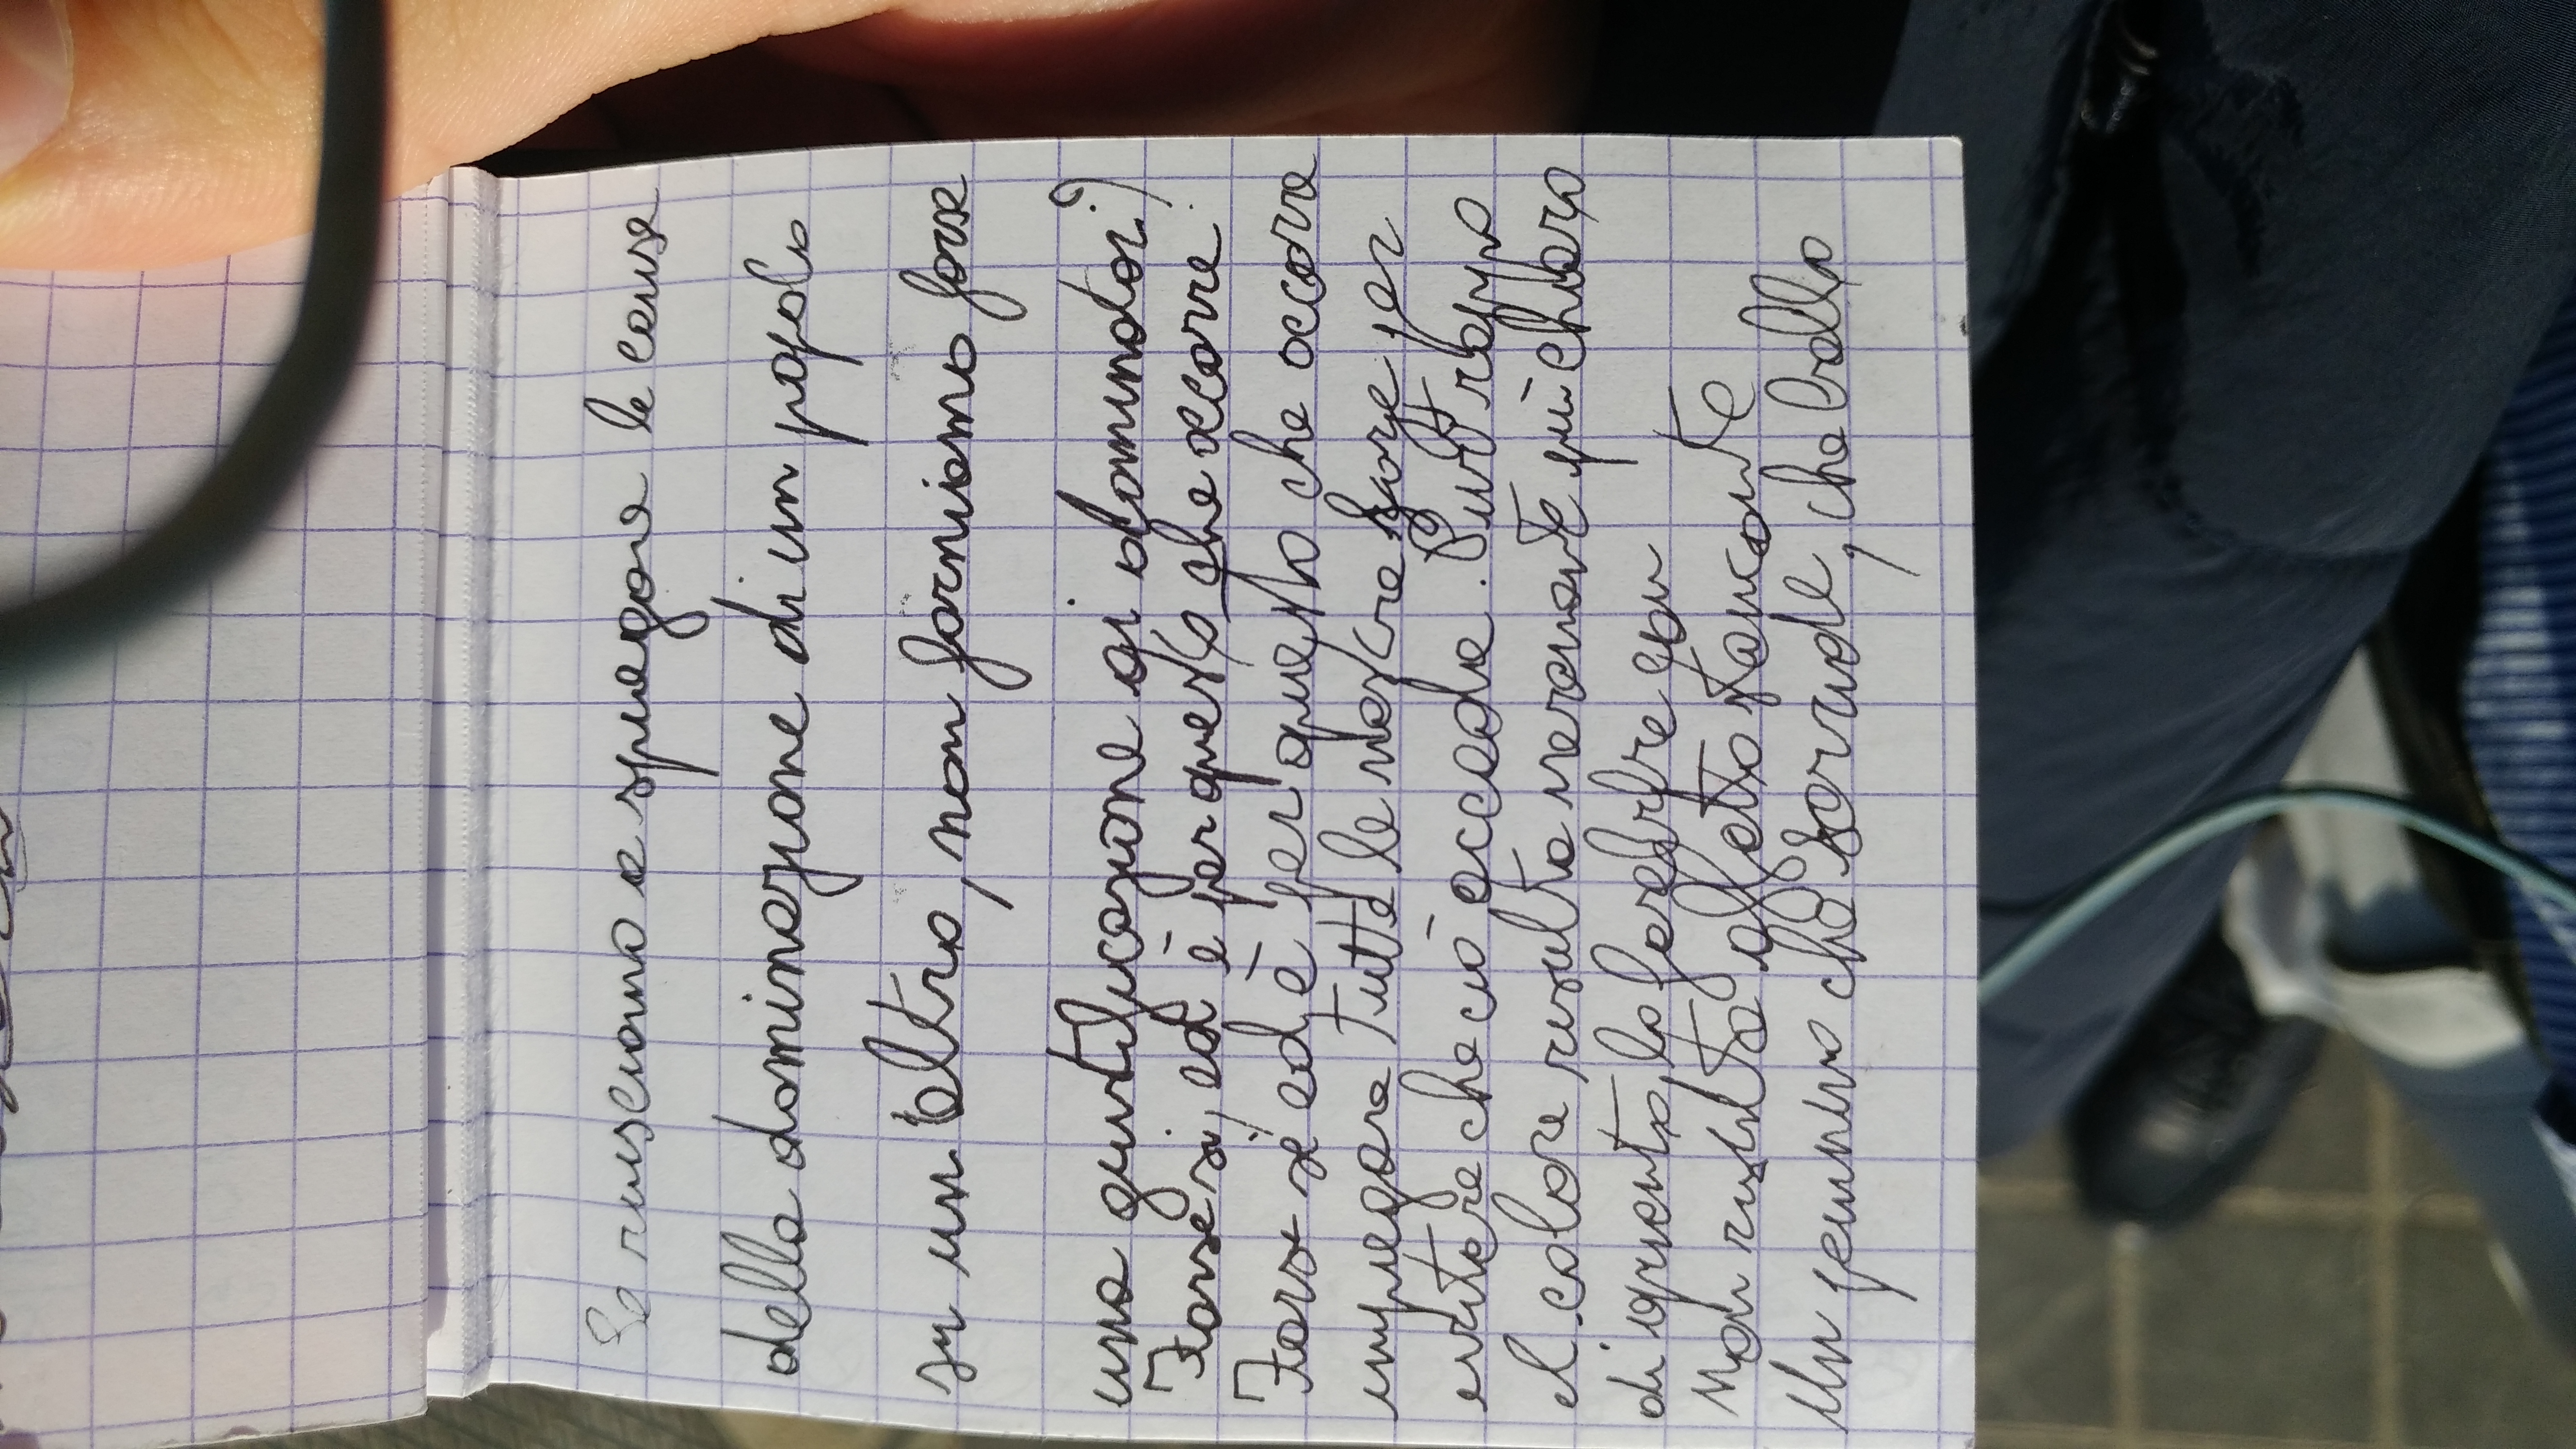 Se riusciamo a spiegare le cause
della dominazione di un popolo
su un altro, non forniamo forse
una giustificazione ai dominatori?
Forse sì, ed è per questo che occorre.
Forse sì ed è per questo che occorre
impiegare tutte le nostre forze per
evitare che ciò accada. Purtroppo
il colore risulta veramente più chiaro
di questo, lo
Non risulta affatto stancante
Un pennino che scrive, che bello